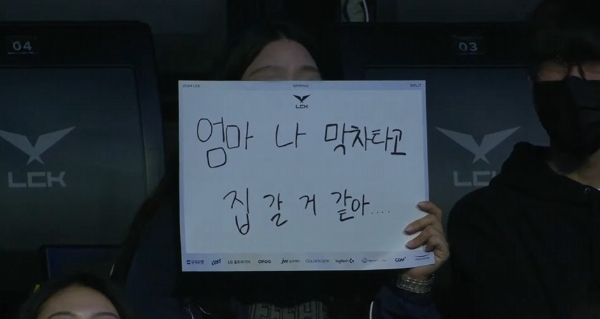 04
03
LCK
엄마 나 막차타고
집 갈 거 같아....
LCK
LCK